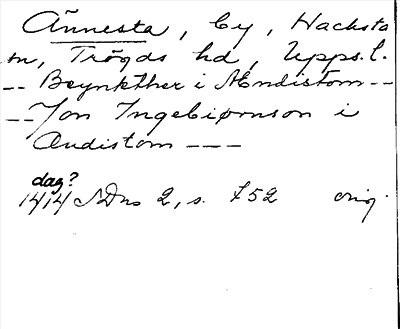 Ännesta, by, Hacksta
sn, Trögds hd, Upps.l.
-- Beynkther i Ændistom --
-- Jon Ingebiørnson i
Andistom ---
dag?
1414 SDns 2, s. 752 orig.